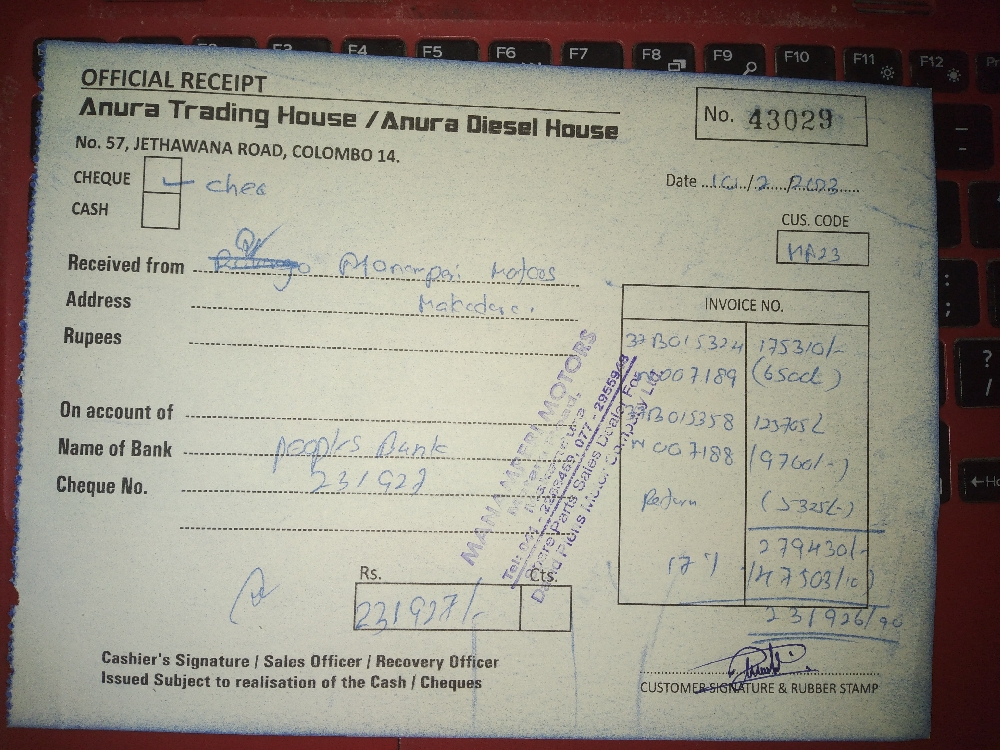 OFFICIAL RECEIPT
Anura Trading House / Anura Diesel House
No. 43029
No. 57, JETHAWANA ROAD, COLOMBO 14.
CHEQUE - chea
CASH
Date 10/2/2023
CUS. CODE
MA23
Received from Motors
Address
Rupees
INVOICE NO.
37B015324 175310/-
N007189 (6500/-)
37B015358 123705/-
N007188 (9700/-)
Return (5325/-)
279430/-
17% (47503/10)
231926/90
On account of
Name of Bank peoples Bank
Cheque No. 231927
MANAMPERI MOTORS
Tel: 077 - 2955948
Spare Parts Sales Dealer For
David Pieris Motor Company Ltd.
Rs. Cts:
231927/-
Cashier's Signature / Sales Officer / Recovery Officer
Issued Subject to realisation of the Cash / Cheques
CUSTOMER SIGNATURE & RUBBER STAMP
F3 F4 F5 F6 F7 F8 F9 F10 F11 F12